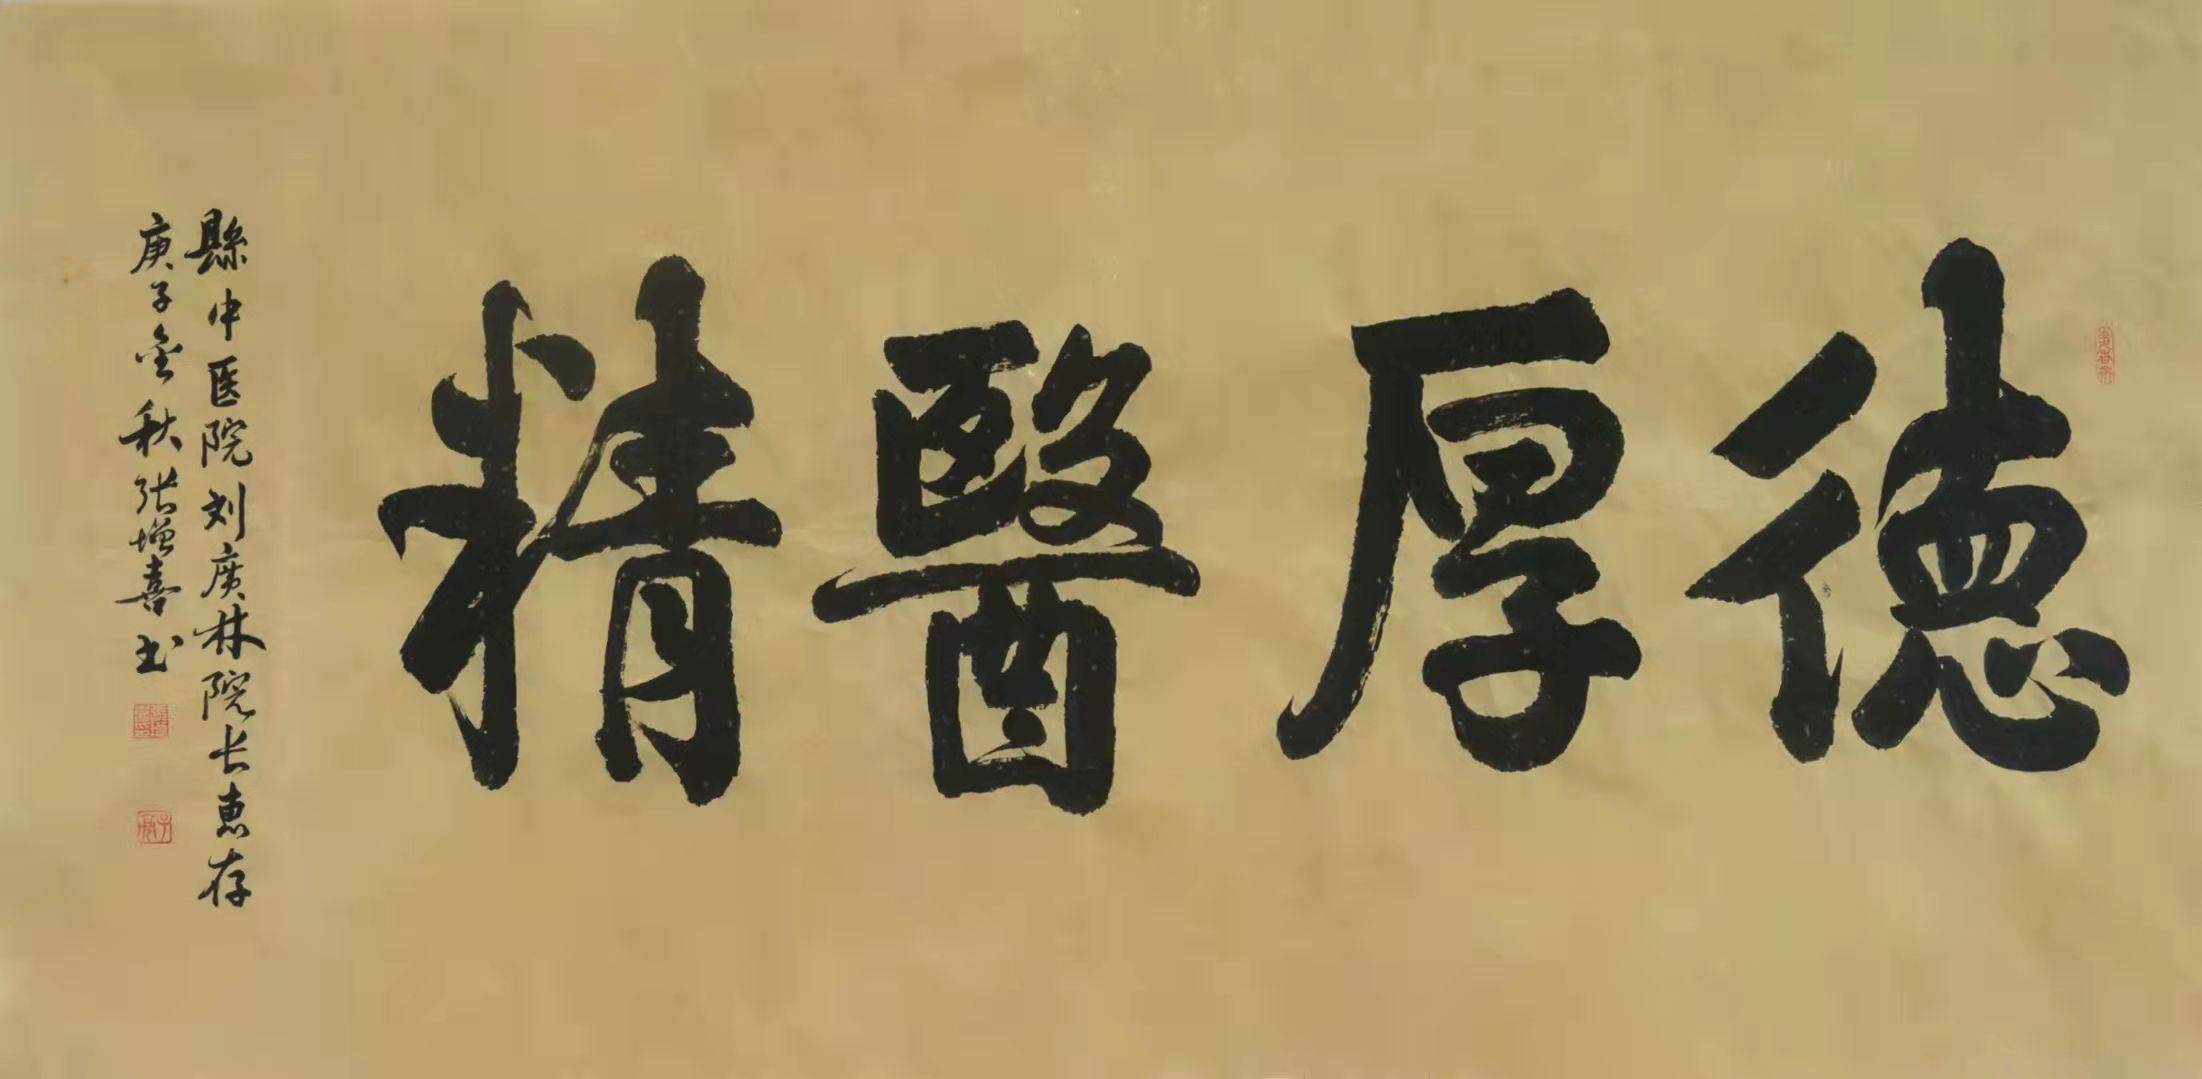 德厚醫精
縣中医院刘廣林院长惠存
庚子金秋张增喜书